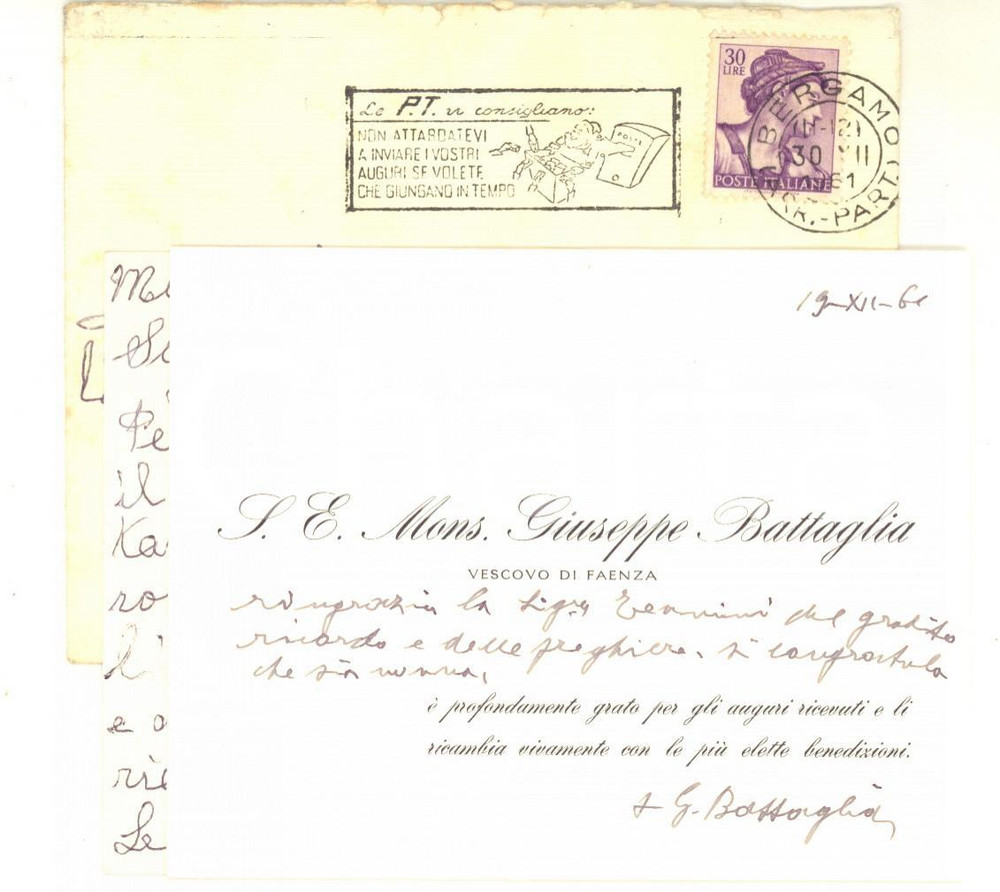 Le P.T. vi consigliano:
NON ATTARDATEVI
A INVIARE I VOSTRI
AUGURI SE VOLETE
CHE GIUNGANO IN TEMPO
POSTE
30
LIRE
POSTE ITALIANE
BERGAMO
30 XII
61
RR.-PART.
19-XII-61
S. E. Mons. Giuseppe Battaglia
VESCOVO DI FAENZA
ringrazia la Sig.ra del gradito
ricordo e delle preghiere. si congratula
che sia nonna.
è profondamente grato per gli auguri ricevuti e li
ricambia vivamente con le più elette benedizioni.
+ G. Battaglia
Pe
il
Ka
ro
l'
e a
ri
Le